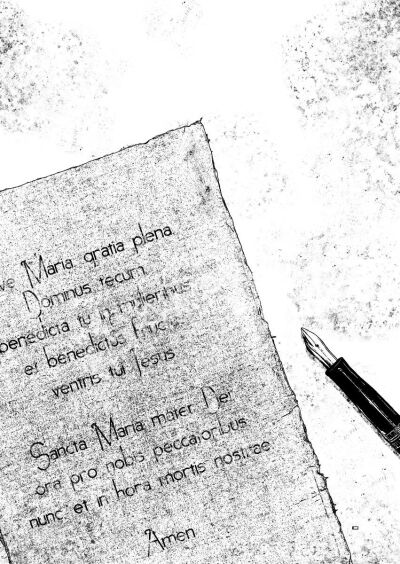 ve Maria, gratia plena.
Dominus tecum,
benedicta tu in mulieribus
et benedictus fruc
ventris tui Jesus
Sancta Maria, mater Dei
ora pro nobis peccatoribus
nunc et in hora mortis nostrae
Amen